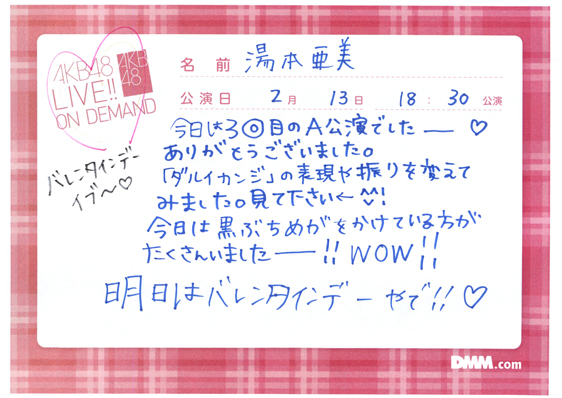 AKB48
LIVE!!
ON DEMAND
AKB
48
名前 湯本亜美
公演日 2月 13日 18:30 公演
今日は3回目のA公演でした— ♡
ありがとうございました。
「ダルイカンジ」の表現や振りを変えて
みました。見て下さい← ^^!
今日は黒ぶちめがをかけている方が
たくさんいました—!! WOW!!
明日はバレンタインデーやで!! ♡
バレンタインデー
イブ〜♡
DMM.com